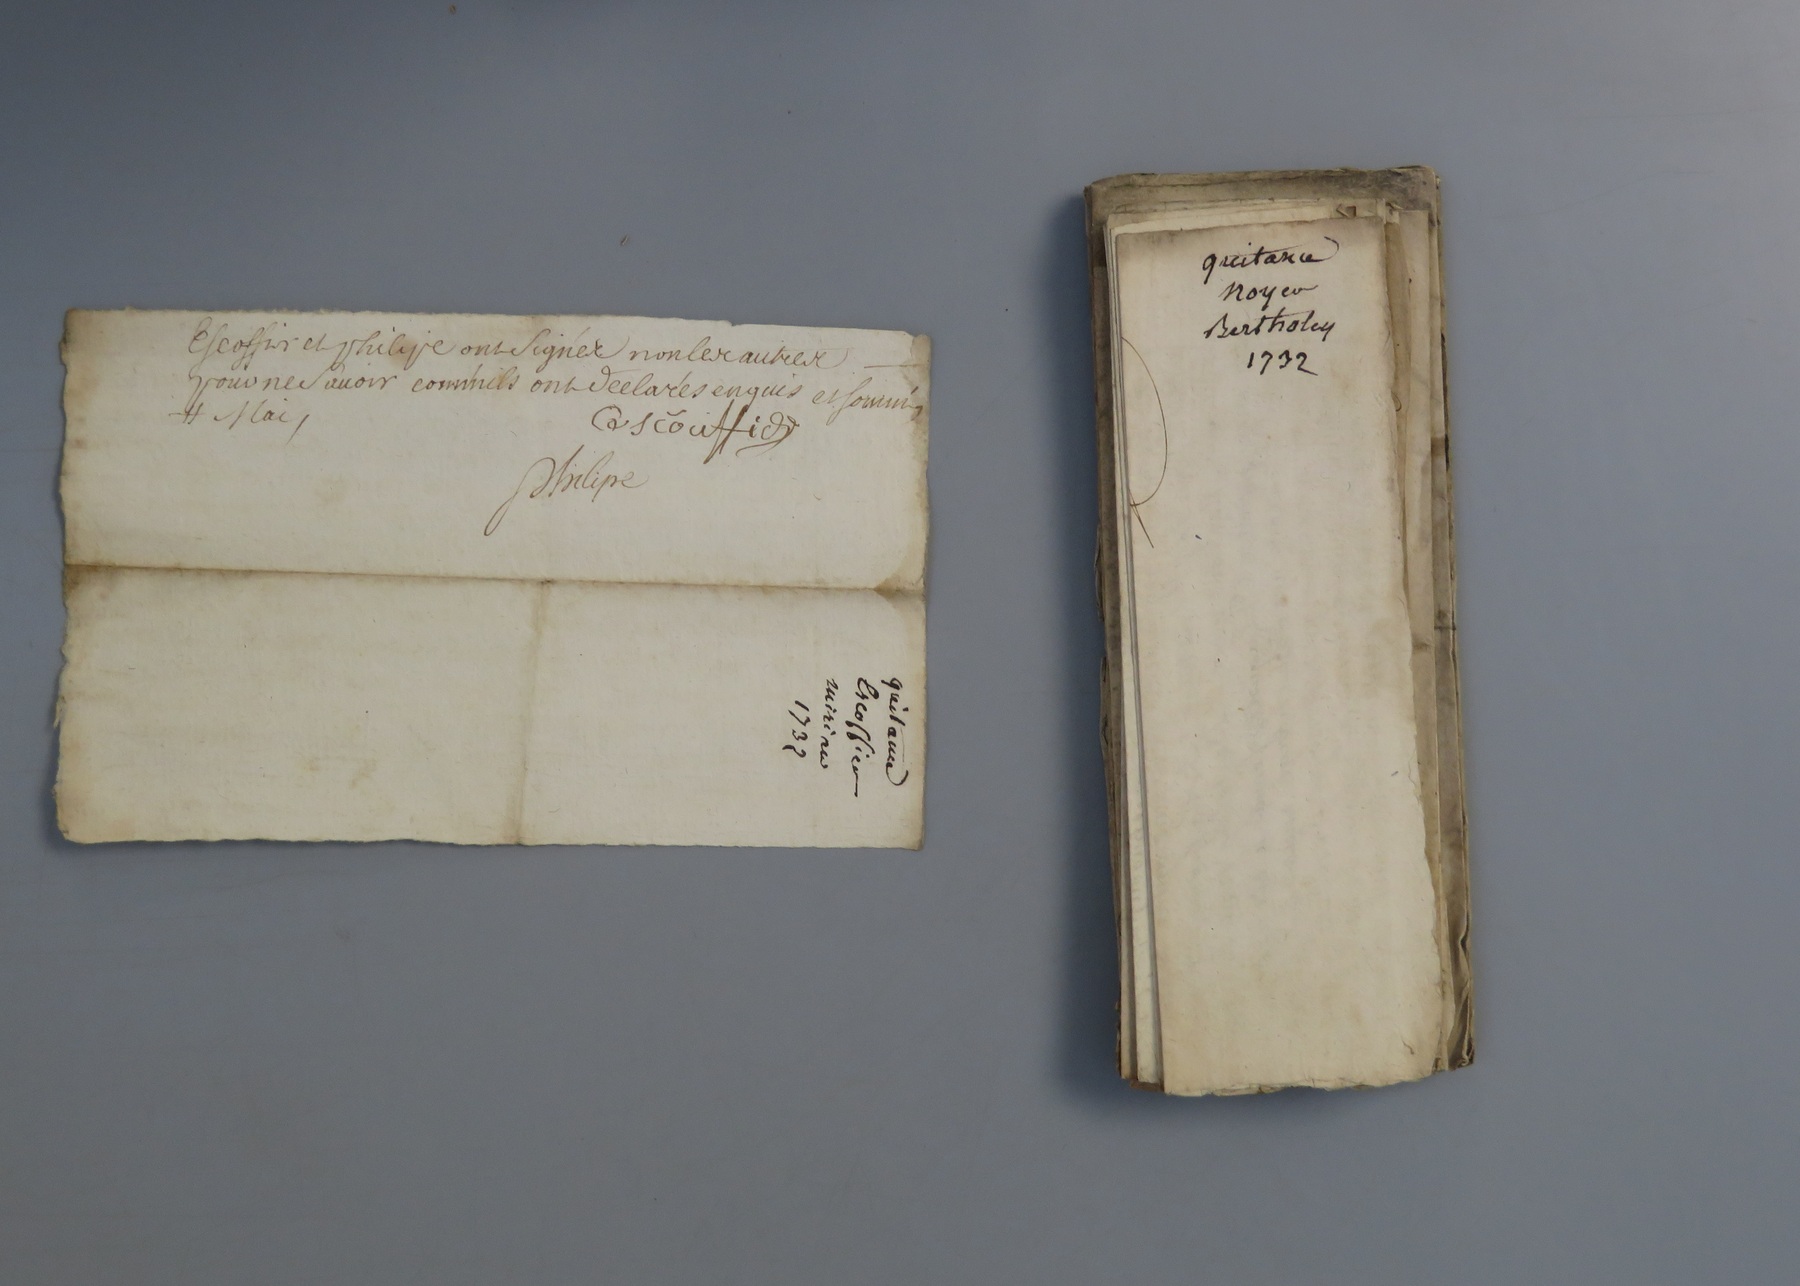 Escoffier et philipe ont signéz non les autrez
pour ne sauoir comm'ils ont declarés enquis et sommés
# Mai,
Escouffier
philipe
quitance
Escoffier
1732
quitance
Noyer
Bertholey
1732